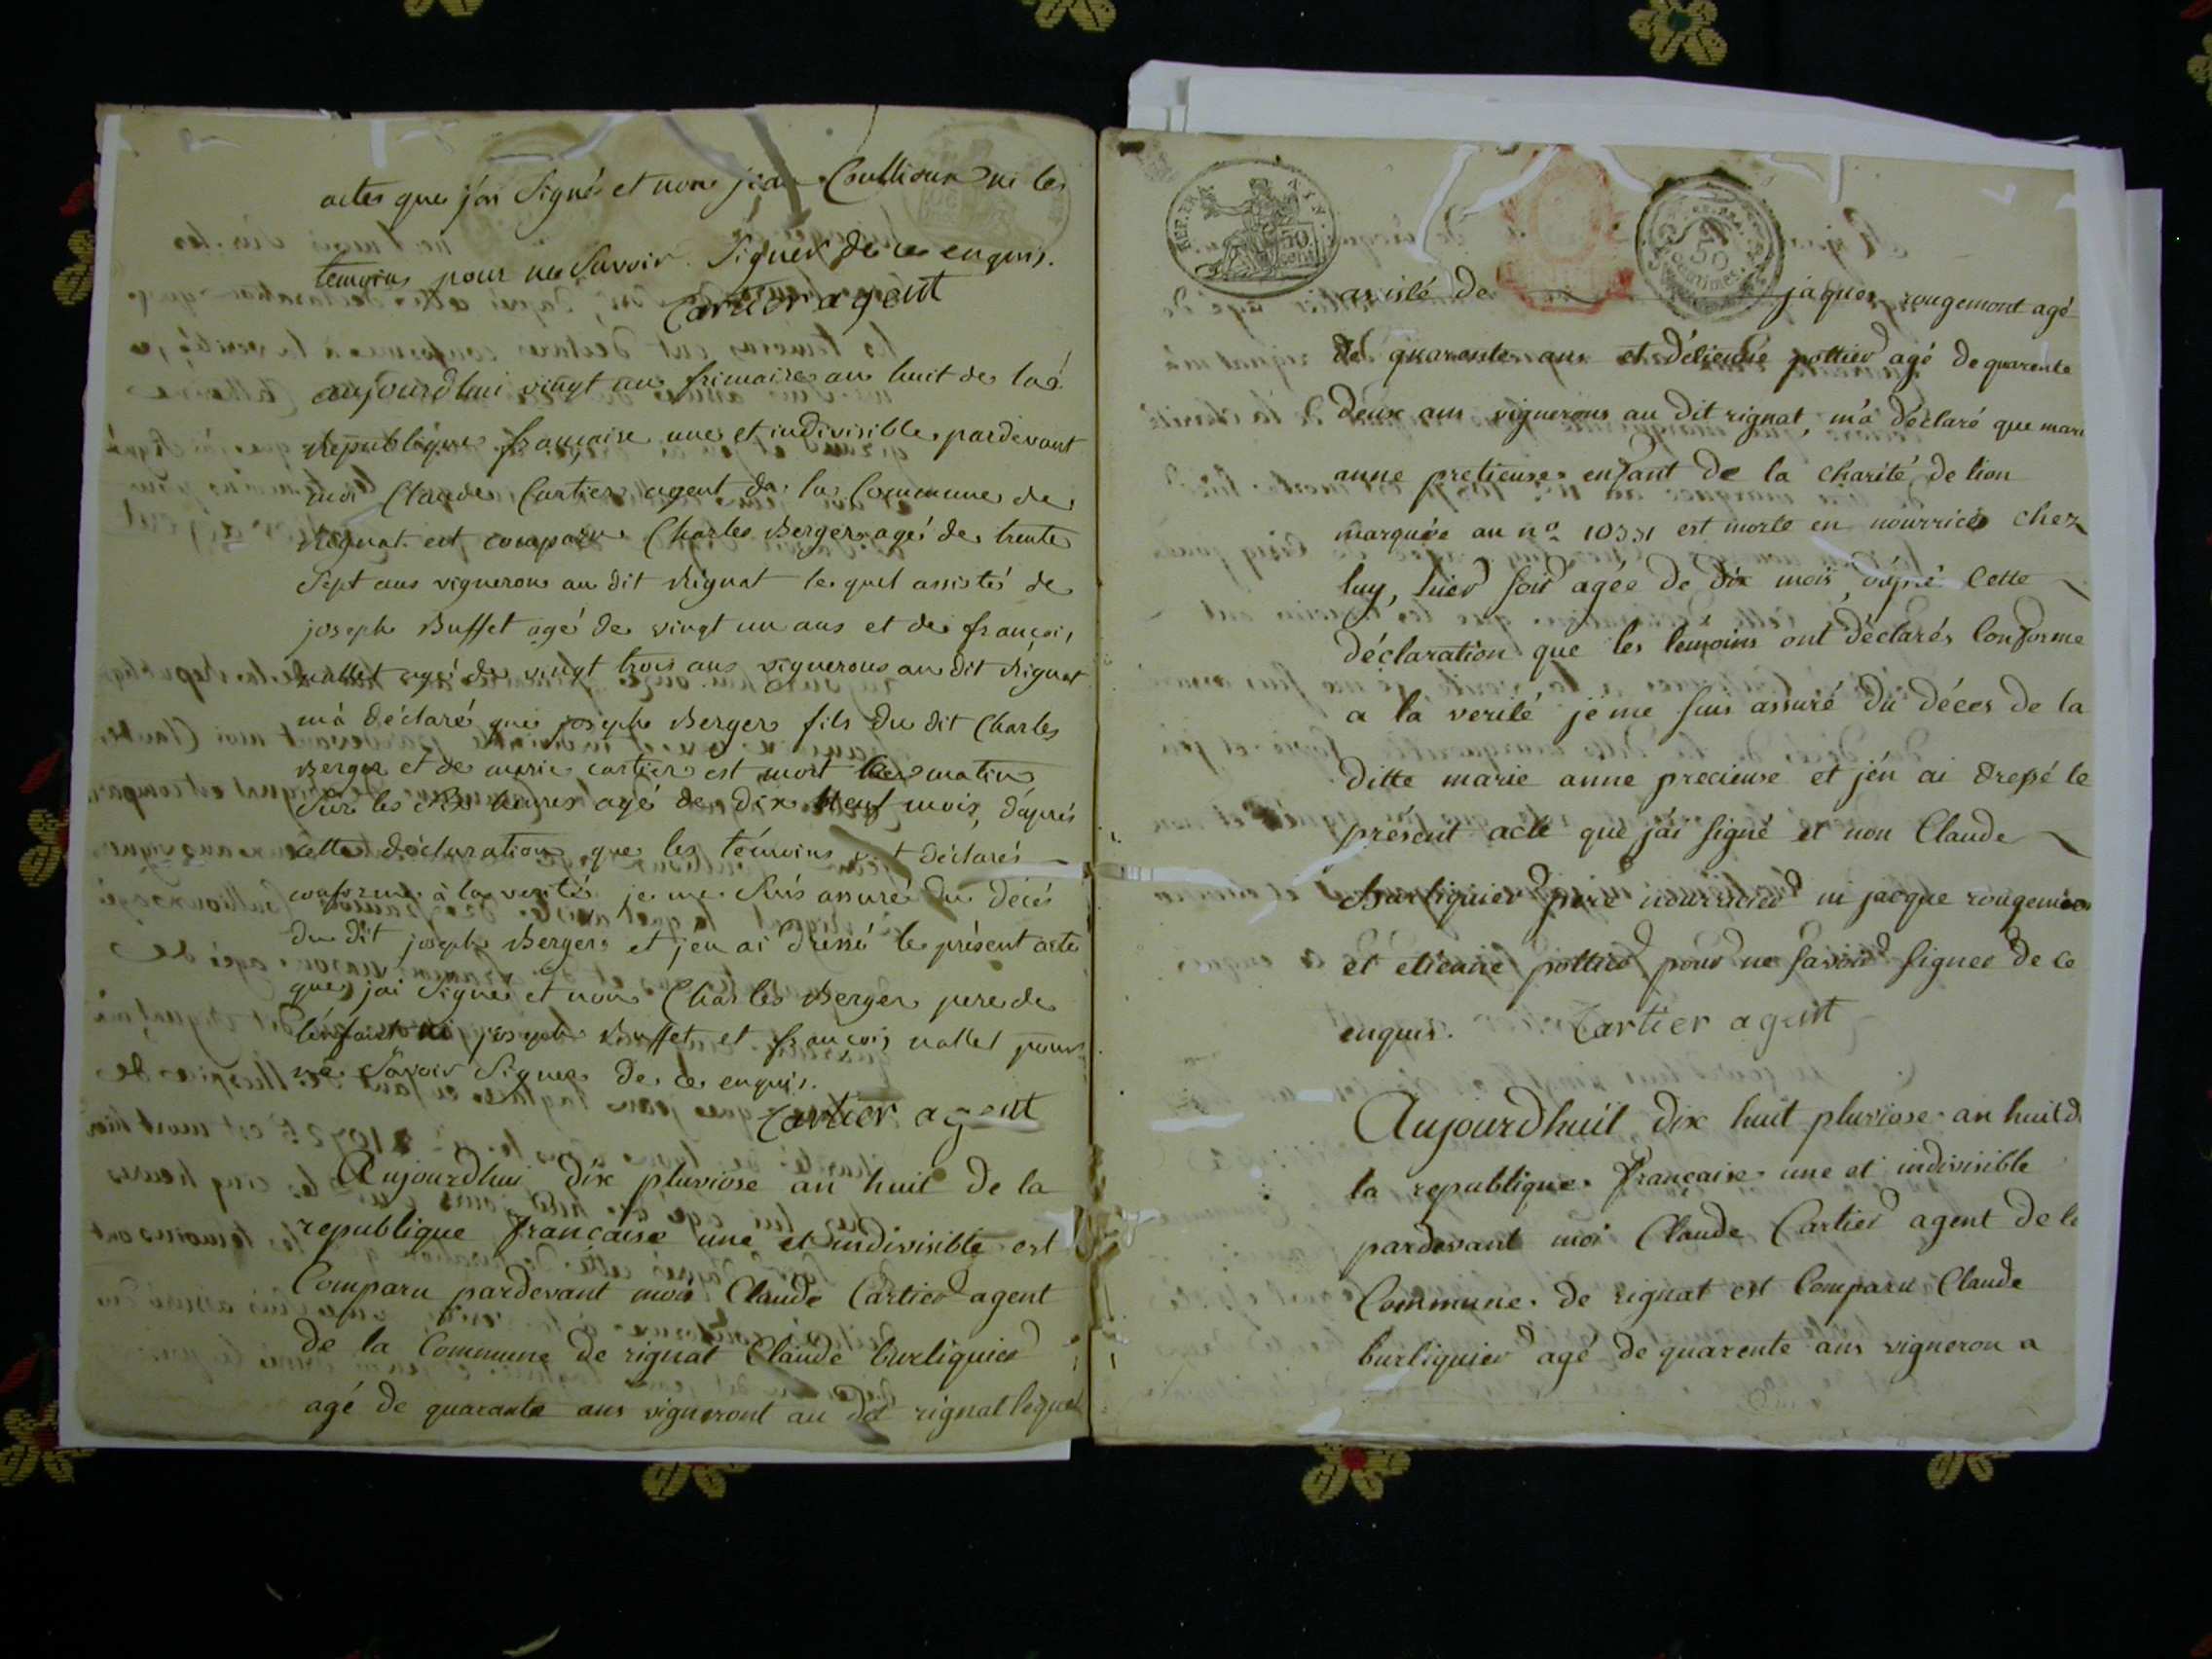 actes que j'ai Signé et non jean Coullioux ni les
temoins pour ne Savoir Signer de ce enquis.
Cartier agent
aujourdhui vingt un frimaire an huit de la
Republique française une et indivisible pardevant
moi Claude Cartier agent de la Commune de
Rignat est comparu Charles Berger agé de trente
Sept ans vigneron au dit Rignat lequel assisté de
joseph Buffet agé de vingt un ans et de françois
nallet agé de vingt trois ans vignerons au dit Rignat
m'a déclaré que joseph Berger fils du dit Charles
Berger et de marie cartier est mort hier matin
Sur les dix heures agé de dix neuf mois, d'après
cette déclaration que les témoins ont déclarés
conforme à la verité je me Suis assuré du décés
du dit joseph Berger et j'en ai dressé le présent acte
que j'ai Signé et non Charles Berger pere de
l'enfant ni joseph Buffet et françois nallet pour
ne Savoir Signer de ce enquis.
Cartier agent
Aujourdhui dix pluviose an huit de la
republique française une et indivisible est
Comparu pardevant moi Claude Cartier agent
de la Commune de rignat Claude burliquier
agé de quarante ans vigneront au dit rignat lequel
REP. FRA. AIN.
50 cent
50 centimes
asisté de jaques rougemont agé
de quarente ans et d'étienne pottier agé de quarente
deux ans vignerons au dit rignat, m'a déclaré que mari
anne pretieuse enfant de la charité de lion
marquée au n° 10331 est morte en nourrice chez
luy, hier soir agée de dix mois, d'aprè cette
déclaration que les temoins ont déclarés Conforme
a la verité je me suis assuré du déces de la
ditte marie anne precieuse et j'en ai drepé le
présent acte que j'ai signé et non Claude
Burliquier pere nourricier ni jacque rougemon
et etienne pottier pour ne savoir signer de ce
enquis. Cartier agent
Aujourdhuit dix huit pluviose an huit d
la republique française une et indivisible
pardevant moi Claude Cartier agent de la
Commune de rignat est Comparu Claude
burliquier agé de quarente ans vigneron a